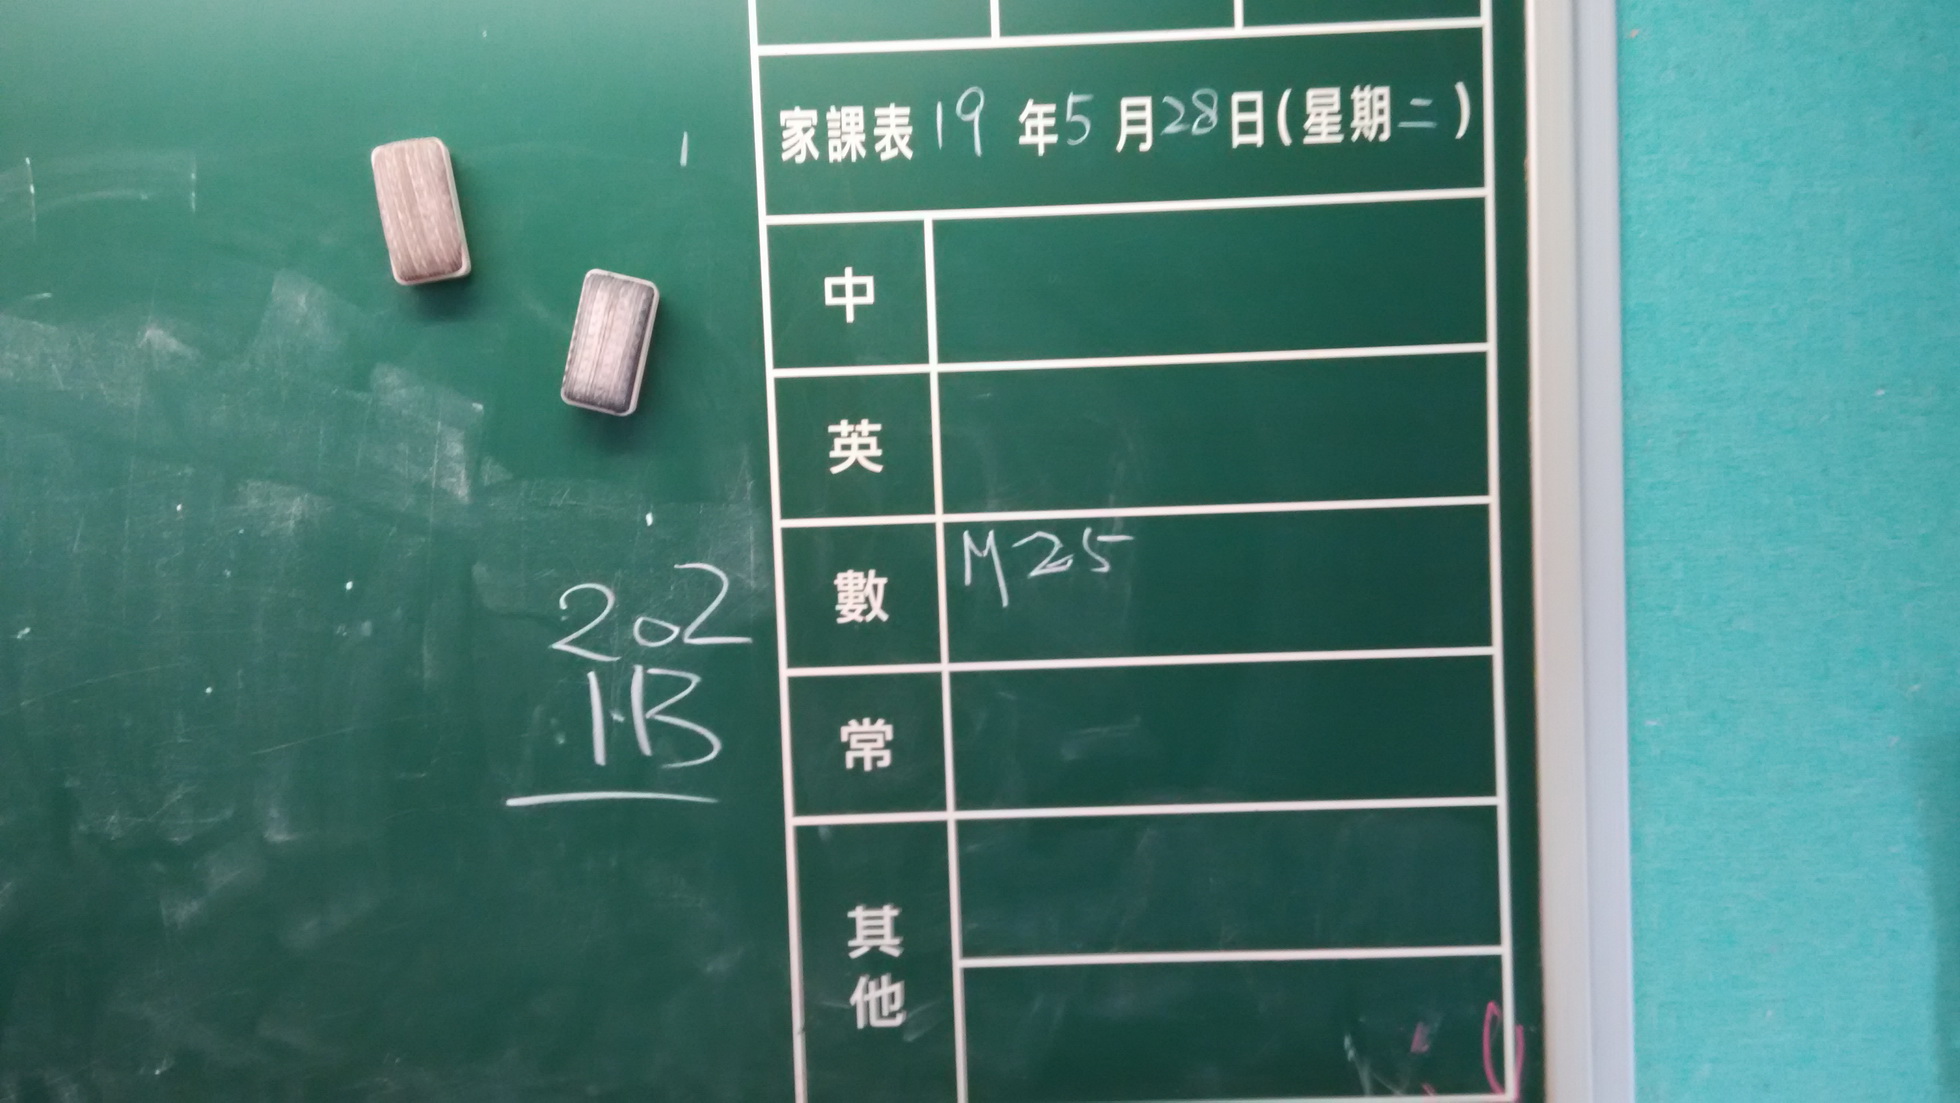 家課表 19 年 5 月 28 日 (星期二)
中
英
數 M25
常
其他
202
1B